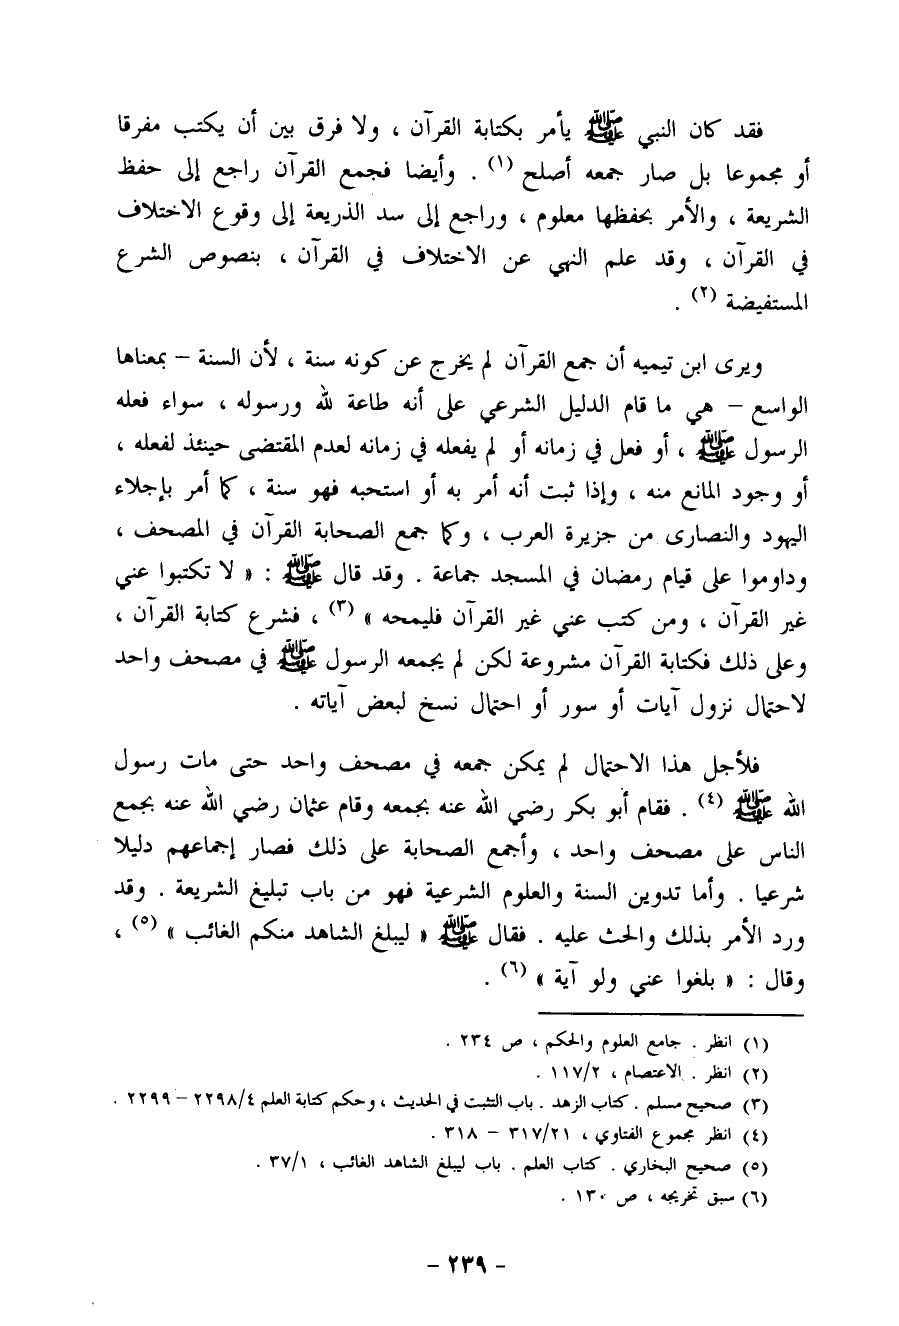 فقد كان النبي ﷺ يأمر بكتابة القرآن ، ولا فرق بين أن يكتب مفرقا
أو مجموعا بل صار جمعه أصلح (١) . وأيضا فجمع القرآن راجع إلى حفظ
الشريعة ، والأمر بحفظها معلوم ، وراجع إلى سد الذريعة إلى وقوع الاختلاف
في القرآن ، وقد علم النهي عن الاختلاف في القرآن ، بنصوص الشرع
المستفيضة (٢) .
ويرى ابن تيميه أن جمع القرآن لم يخرج عن كونه سنة ، لأن السنة – بمعناها
الواسع – هي ما قام الدليل الشرعي على أنه طاعة لله ورسوله ، سواء فعله
الرسول ﷺ ، أو فعل في زمانه أو لم يفعله في زمانه لعدم المقتضى حينئذ لفعله ،
أو وجود المانع منه ، وإذا ثبت أنه أمر به أو استحبه فهو سنة ، كما أمر بإجلاء
اليهود والنصارى من جزيرة العرب ، وكما جمع الصحابة القرآن في المصحف ،
وداوموا على قيام رمضان في المسجد جماعة . وقد قال ﷺ : « لا تكتبوا عني
غير القرآن ، ومن كتب عني غير القرآن فليمحه » (٣) ، فشرع كتابة القرآن ،
وعلى ذلك فكتابة القرآن مشروعة لكن لم يجمعه الرسول ﷺ في مصحف واحد
لاحتمال نزول آيات أو سور أو احتمال نسخ لبعض آياته .
فلأجل هذا الاحتمال لم يمكن جمعه في مصحف واحد حتى مات رسول
الله ﷺ (٤) . فقام أبو بكر رضي الله عنه بجمعه وقام عثمان رضي الله عنه بجمع
الناس على مصحف واحد ، وأجمع الصحابة على ذلك فصار إجماعهم دليلا
شرعيا . وأما تدوين السنة والعلوم الشرعية فهو من باب تبليغ الشريعة . وقد
ورد الأمر بذلك والحث عليه . فقال ﷺ « ليبلغ الشاهد منكم الغائب » (٥) ،
وقال : « بلغوا عني ولو آية » (٦) .
(١) انظر . جامع العلوم والحكم ، ص ٢٣٤ .
(٢) انظر . الاعتصام ، ١١٧/٢ .
(٣) صحيح مسلم . كتاب الزهد . باب التثبت في الحديث ، وحكم كتابة العلم ٢٢٩٨/٤ – ٢٢٩٩ .
(٤) انظر مجموع الفتاوي ، ٣١٧/٢١ – ٣١٨ .
(٥) صحيح البخاري . كتاب العلم . باب ليبلغ الشاهد الغائب ، ٣٧/١ .
(٦) سبق تخريجه ، ص ١٣٠ .
- ٢٣٩ -